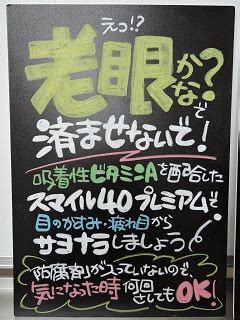 えっ!?
老眼かな?で
済ませないで!
吸着性ビタミンAを配合した
スマイル40プレミアムで
目のかすみ・疲れ目から
サヨナラしましょう
防腐剤が入っていないので、
気になった時何回
さしてもOK!